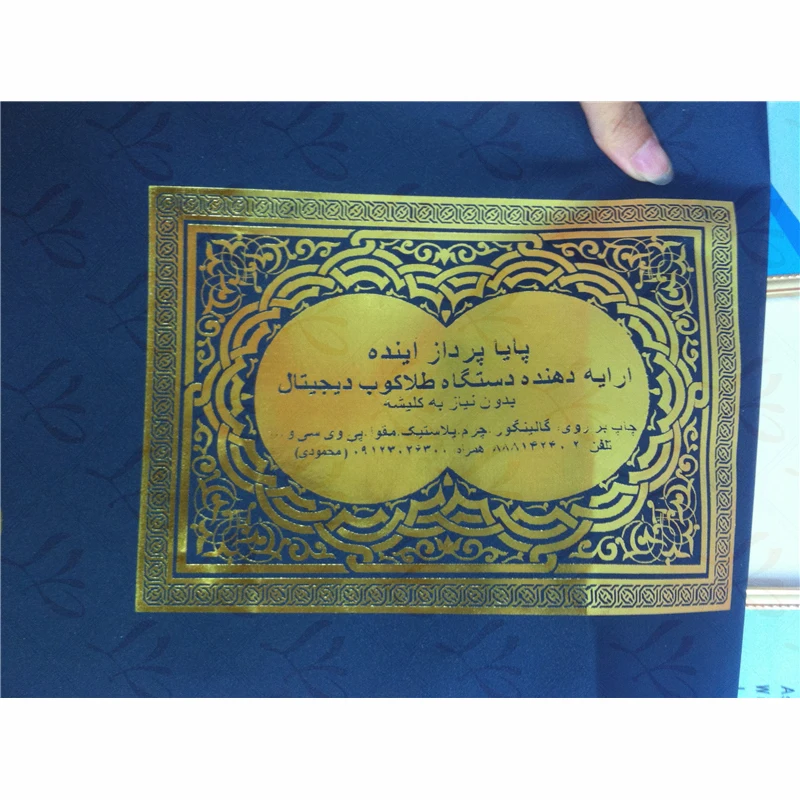 پایا پرداز اینده
ارایه دهنده دستگاه طلاکوب دیجیتال
بدون نیاز به کلیشه
چاپ بر روی: گالینگور. چرم.پلاستیک.مقوا.پی وی سی و...
تلفن: همراه: (محمودی)
A
W